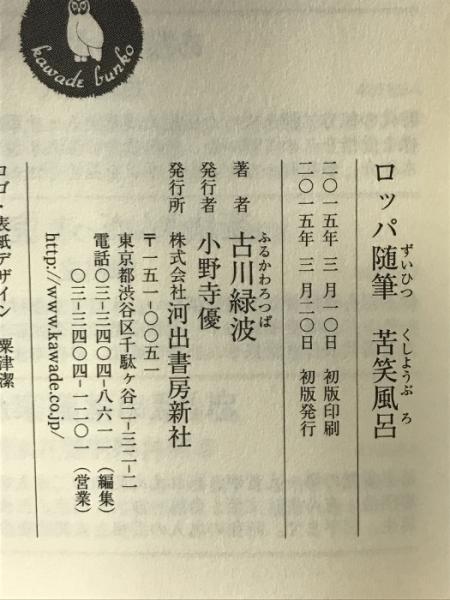 kawade bunko
ロッパ随筆 苦笑風呂
ずいひつ くしょうぶろ
二〇一五年 三月一〇日 初版印刷
二〇一五年 三月二〇日 初版発行
著者 古川緑波
ふるかわろっぱ
発行者 小野寺優
発行所 株式会社河出書房新社
〒一五一-〇〇五一
東京都渋谷区千駄ヶ谷二-三二-二
電話〇三-三四〇四-八六一一（編集）
〇三-三四〇四-一二〇一（営業）
http://www.kawade.co.jp/
ロゴ・表紙デザイン 粟津潔